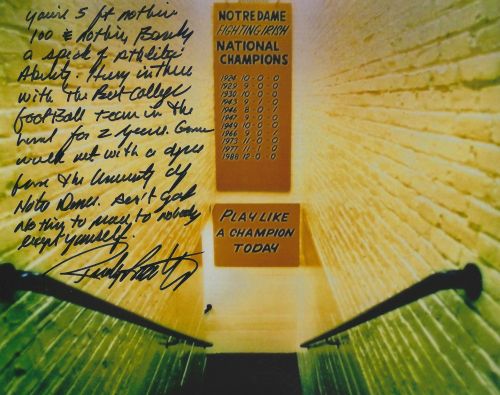 you're 5 ft nothin
100 & nothin, Barely
a speck of Athletic
Ability. Hung in there
with the Best College
football team in the
land for 2 years. Gonna
walk out with a degree
from the University of
Notre Dame. Don't gotta
nothing to prove to nobody
except yourself.
NOTRE DAME
FIGHTING IRISH
NATIONAL
CHAMPIONS
1924 10-0-0
1929 9-0-0
1930 10-0-0
1943 9-1-0
1946 8-0-1
1947 9-0-0
1949 10-0-0
1966 9-0-1
1973 11-0-0
1977 11-1-0
1988 12-0-0
PLAY LIKE
A CHAMPION
TODAY